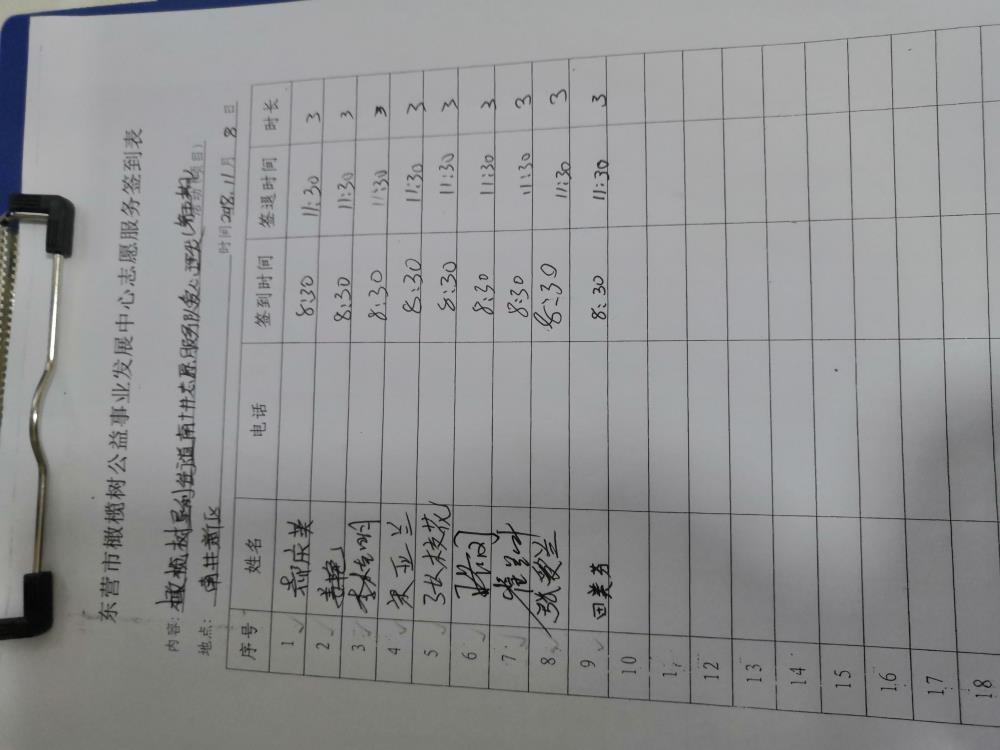 东营市橄榄树公益事业发展中心志愿服务签到表
内容: 橄榄树 街道南井志愿服务队 活动(项目)
地点: 南井新区 时间2018.11月8日
序号 姓名 电话 签到时间 签退时间 时长
1 郝庆美 8:30 11:30 3
2 8:30 11:30 3
3 8:30 11:30 3
4 宋亚兰 8:30 11:30 3
5 张枝花 8:30 11:30 3
6 8:30 11:30 3
7 8:30 11:30 3
8 张爱兰 8:30 11:30 3
9 田美芳 8:30 11:30 3
10
11
12
13
14
15
16
17
18